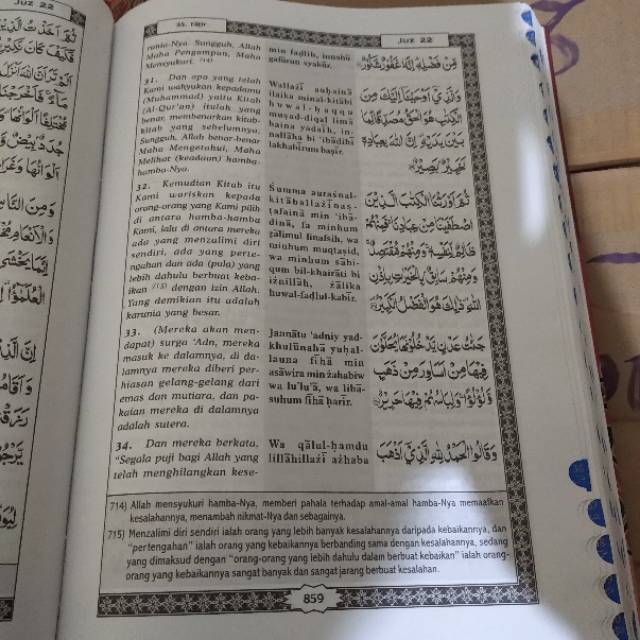 JUZ 22
35. Fāṭir
JUZ 22
runia-Nya. Sungguh, Allah
Maha Pengampun, Maha
Mensyukuri. 714)
31. Dan apa yang telah
Kami wahyukan kepadamu
(Muhammad) yaitu Kitab
(Al-Qur'an) itulah yang
benar, membenarkan kitab-
kitab yang sebelumnya.
Sungguh, Allah benar-benar
Maha Mengetahui, Maha
Melihat (keadaan) hamba-
hamba-Nya.
32. Kemudian Kitab itu
Kami wariskan kepada
orang-orang yang Kami pilih
di antara hamba-hamba
Kami, lalu di antara mereka
ada yang menzalimi diri
sendiri, ada yang perte-
ngahan dan ada (pula) yang
lebih dahulu berbuat keba-
ikan 715) dengan izin Allah.
Yang demikian itu adalah
karunia yang besar.
33. (Mereka akan men-
dapat) surga 'Adn, mereka
masuk ke dalamnya, di da-
lamnya mereka diberi per-
hiasan gelang-gelang dari
emas dan mutiara, dan pa-
kaian mereka di dalamnya
adalah sutera.
34. Dan mereka berkata,
"Segala puji bagi Allah yang
telah menghilangkan kese-
min faḍlih, innahū
gafūrun syakūr.
Wallażī auḥainā
ilaika minal-kitābi
huwal-ḥaqqu
muṣad-diqal limā
baina yadaih, in-
nallāha bi 'ibādihī
lakhabīrum baṣīr.
Ṡumma auraṡnal-
kitāballażīnaṣ-
ṭafainā min 'ibā-
dinā, fa minhum
ẓālimul linafsih, wa
minhum muqtaṣid,
wa minhum sābi-
qum bil-khairāti bi
iżnillāh, żālika
huwal-faḍlul-kabīr.
Jannātu 'adniy yad-
khulūnahā yuḥal-
launa fīhā min
asāwira min żahabiw
wa lu'lu'ā, wa libā-
suhum fīhā ḥarīr.
Wa qālul-ḥamdu
lillāhillażī ażhaba
مِنْ فَضْلِهٖ اِنَّهٗ غَفُوْرٌ شَكُوْرٌ
وَالَّذِيْٓ اَوْحَيْنَآ اِلَيْكَ مِنَ
الْكِتٰبِ هُوَ الْحَقُّ مُصَدِّقًا لِّمَا
بَيْنَ يَدَيْهِ اِنَّ اللّٰهَ بِعِبَادِهٖ
لَخَبِيْرٌۢ بَصِيْرٌ
ثُمَّ اَوْرَثْنَا الْكِتٰبَ الَّذِيْنَ
اصْطَفَيْنَا مِنْ عِبَادِنَا فَمِنْهُمْ
ظَالِمٌ لِّنَفْسِهٖ وَمِنْهُمْ مُّقْتَصِدٌ
وَمِنْهُمْ سَابِقٌۢ بِالْخَيْرٰتِ بِاِذْنِ
اللّٰهِ ذٰلِكَ هُوَ الْفَضْلُ الْكَبِيْرُ
جَنّٰتُ عَدْنٍ يَّدْخُلُوْنَهَا يُحَلَّوْنَ
فِيْهَا مِنْ اَسَاوِرَ مِنْ ذَهَبٍ
وَّلُؤْلُؤًا وَلِبَاسُهُمْ فِيْهَا حَرِيْرٌ
وَقَالُوا الْحَمْدُ لِلّٰهِ الَّذِيْٓ اَذْهَبَ
714) Allah mensyukuri hamba-Nya, memberi pahala terhadap amal-amal hamba-Nya memaafkan
kesalahannya, menambah nikmat-Nya dan sebagainya.
715) Menzalimi diri sendiri ialah orang yang lebih banyak kesalahannya daripada kebaikannya, dan
"pertengahan" ialah orang yang kebaikannya berbanding sama dengan kesalahannya, sedang
yang dimaksud dengan "orang-orang yang lebih dahulu dalam berbuat kebaikan" ialah orang-
orang yang kebaikannya sangat banyak dan sangat jarang berbuat kesalahan.
859